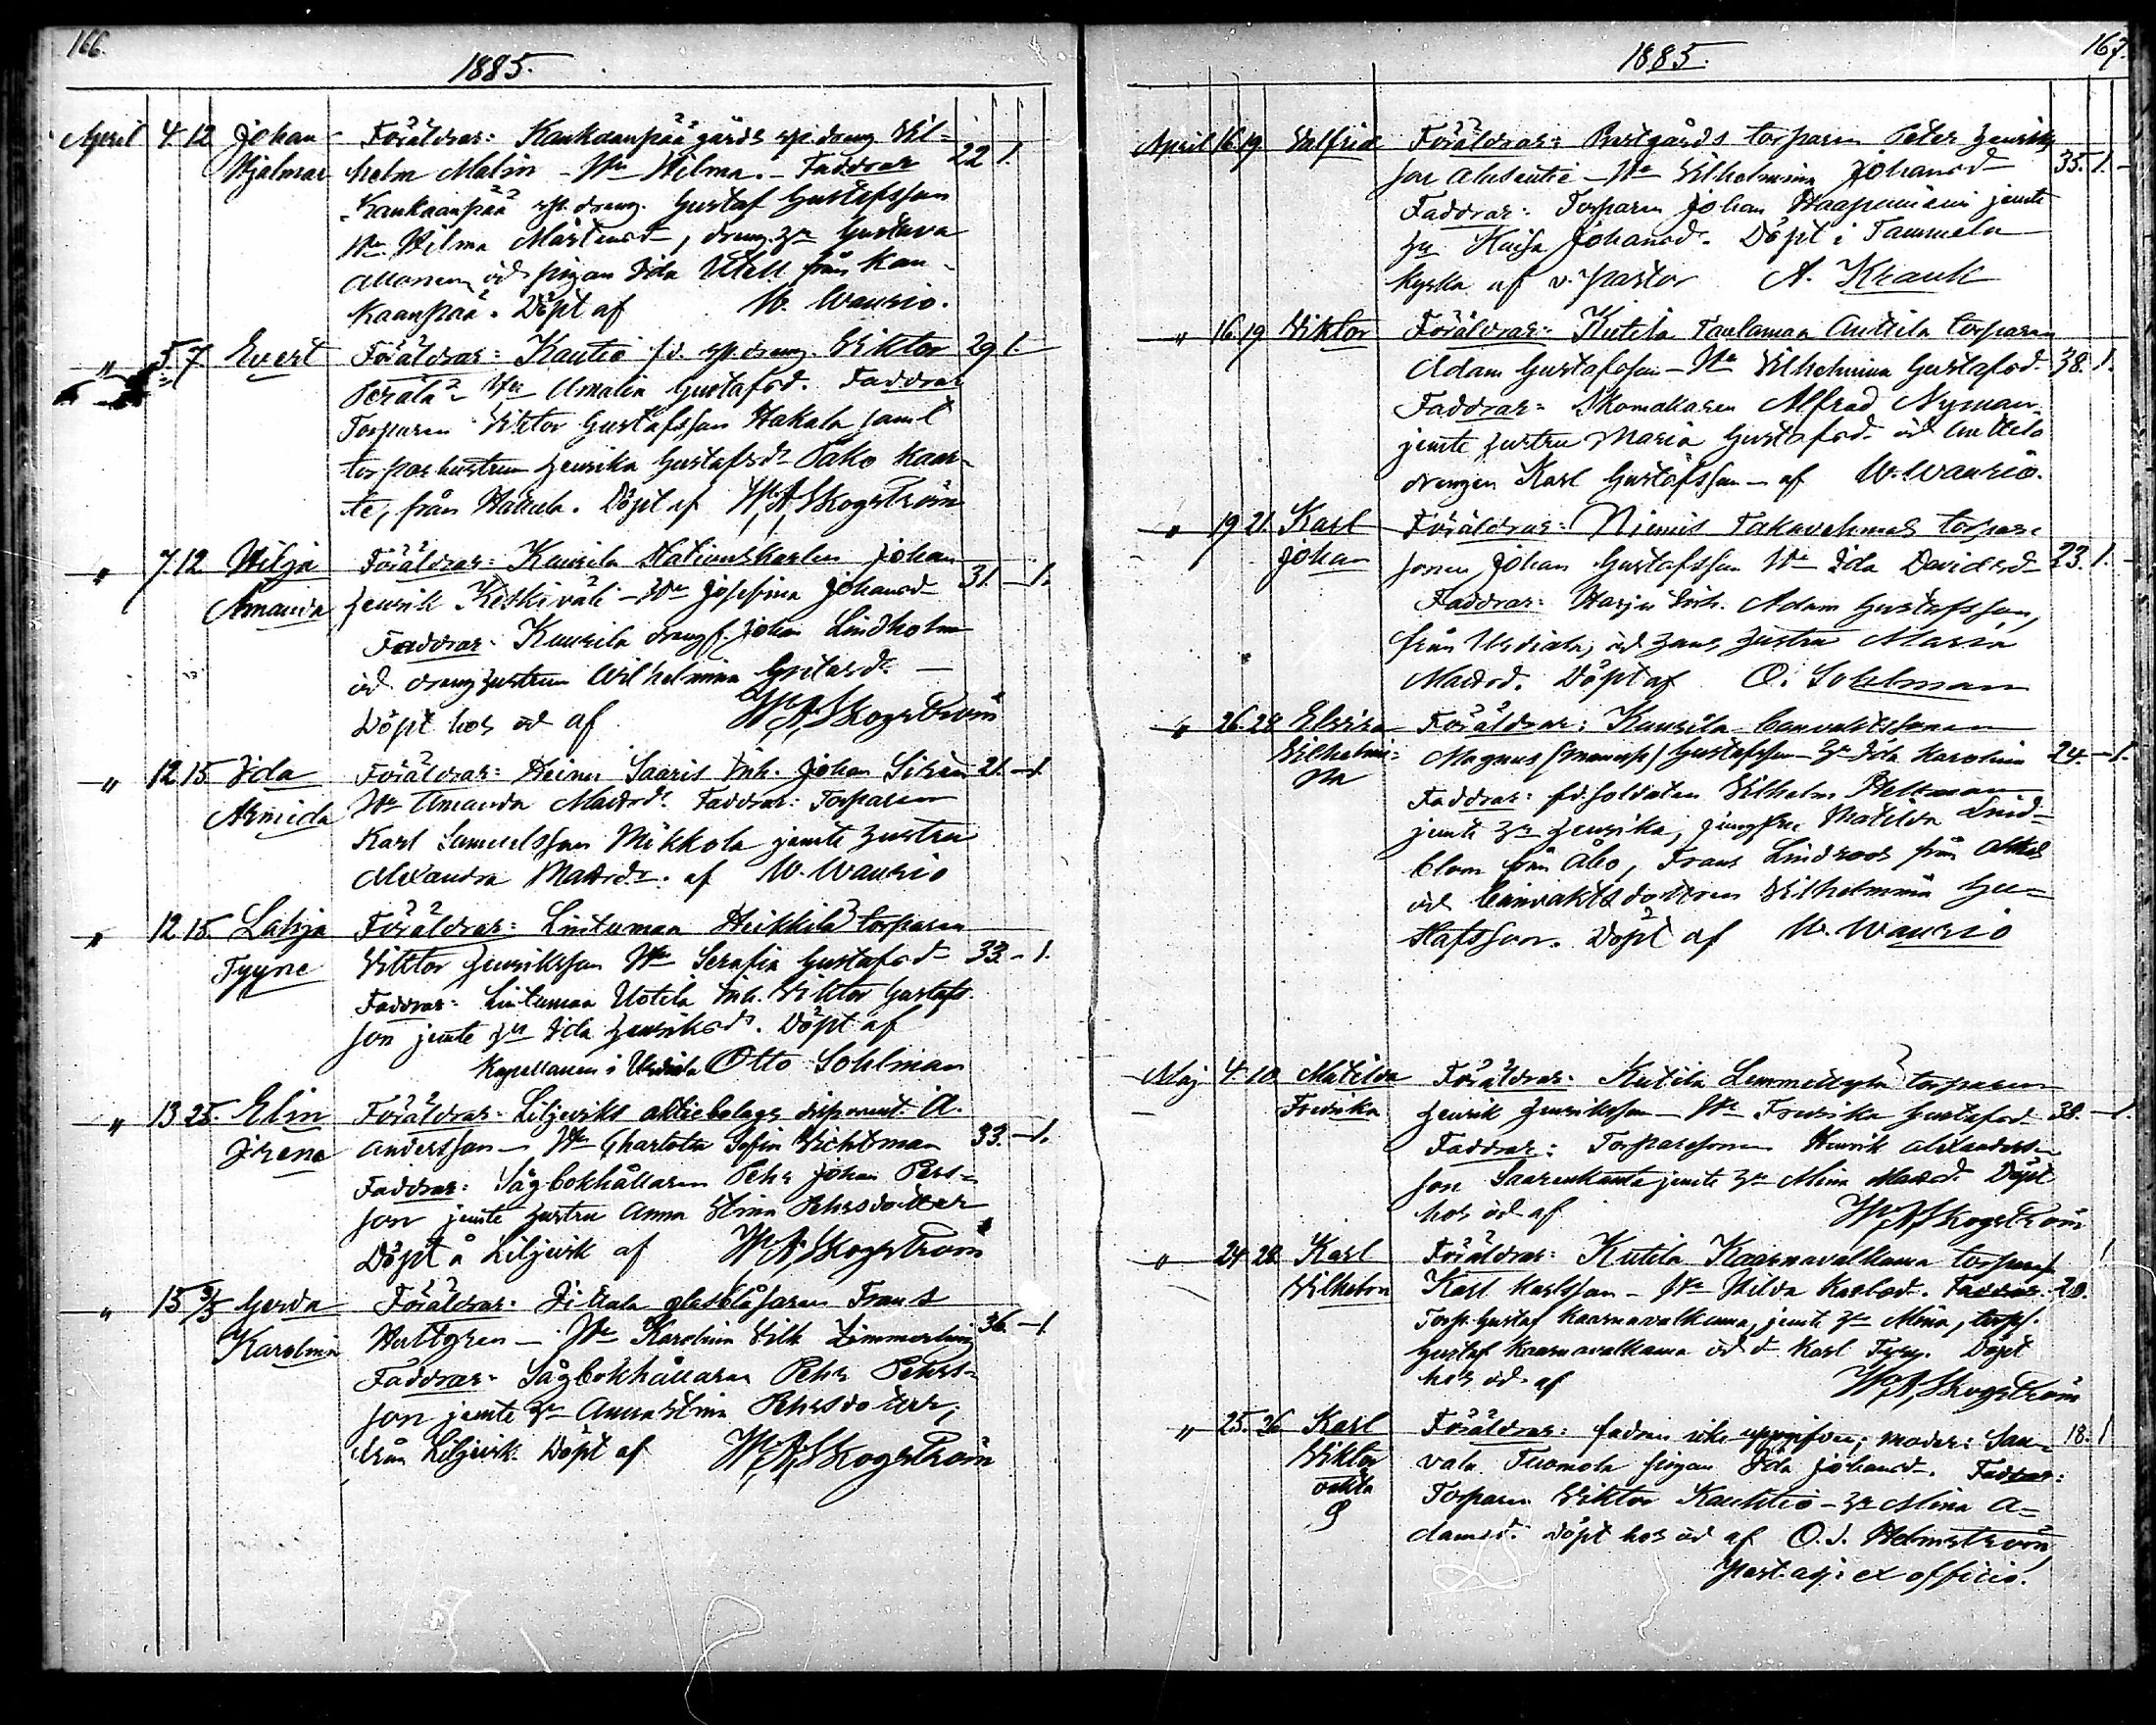 166.
1885.
April 4. 12 Johan Föräldrar: Kankaanpää gårds sp. dreng Vil-
Hjalmar helm Malin - Hu Hilma. - Faddrar 22 1.
Kankaanpää sp. dreng. Gustaf Gustafsson
Hu Hilma Mårtensd, dreng. Hu Gustava
och pigan Ida Utell från Kan-
kaanpää. Döpt af W. Waurio.
" 5. 7. Evert Föräldrar: Kautio fd. sp. dreng. Viktor 29 1.
Perälä - Hu Amalia Gustafsd. Faddrar
Torparen Viktor Gustafsson Hakala samt
torparhustrun Henrika Gustafsdr Pako Kaar-
te, från Hakala. Döpt af W. A. Skogström
" 7. 12. Hilja Föräldrar: Kaurila Stationskarlen Johan
Amanda Henrik Keskiväli - Hu Josefina Johansd 31. - 1.
Faddrar: Kaurila drengf. Johan Lindholm
och drenghustrun Wilhelmina
Döpt hos öd af W. A. Skogström
" 12 15 Ida Föräldrar: Heinu Saaris Inh. Johan Sirén 21. - 1.
Armida Hu Amanda Mattsdr. Faddrar: Torparen
Karl Samuelsson Mikkola jemte hustru
Alexandra Mattsdr. af W. Waurio
" 12. 15. Lahja Föräldrar: Lintumaa Heikkilä torparen
Tyyne Viktor Henriksson Hu Serafia Gustafsd 33. - 1.
Faddrar: Lintumaa Uotila Inh. Viktor Gustafs-
son jemte Hu Ida Henriksdr. Döpt af
Kapellanen i Urdiala Otto Sohlman
" 13 25. Elin Föräldrar: Liljeviks aktiebolags disponent A.
Irene Andersson - Hu Charlotta Sofia Wichtman 33. - 1.
Faddrar: Sågbokhållaren Pehr Johan Pers-
son jemte hustru Anna Stina Pehrsdotter
Döpt å Liljevik af W. A. Skogström
" 15 3/5 Gerda Föräldrar: glasblåsaren Frans
Karolina Hultgren - Hu Karolina Vilh. 36. - 1.
Faddrar: Sågbokhållaren Pehr Pehrs-
son jemte Hu Anna Stina Pehrsdotter,
från Liljevik. Döpt af W. A. Skogström
167.
1885.
April 16. 19 Valfrid Föräldrar: Prestgårds torparen Peter Henriks-
son - Hu Vilhelmina Johansd 35. 1. -
Faddrar: Torparen Johan Haapaniemi jemte
Hu Kaisa Johansd. Döpt i Tammela
kyrka af v. pastor A. Krank
" 16. 19 Viktor Föräldrar: Kutila Taulamaa Anttila torparen
Adam Gustafsson - Hu Vilhelmina Gustafsd. 38. 1.
Faddrar: Skomakaren Alfred Nyman
jemte hustru Maria Gustafsd. öd Anttila
drengen Karl Gustafsson - af W. Waurio.
" 19 21. Karl Föräldrar: Niemis Takavehmas torpare-
Johan sonen Johan Gustafsson Hu Ida Davidsd 23. 1. -
Faddrar: Harju Inh. Adam Gustafsson,
från Urdiala, och hans hustru Maria
Mattsd. Döpt af O. Sohlman
" 26. 28 Elviira Föräldrar: Kaurila banvaktssonen
Vilhelmi- Magnus Gustafsson - Hu Ida Karolina 24. - 1.
na Faddrar: fd. soldaten Vilhelm Hellman
jemte Hu Henrika, jungfru Matilda Lind-
blom från Åbo, Frans Lindroos från
och banvaktsdottren Vilhelmina Gu-
stafsson. Döpt af W. Waurio
Maj 4. 10. Matilda Föräldrar: Kutila Lemmettylä torparen
Fredrika Henrik Henriksson - Hu Fredrika Gustafsd 38. - 1.
Faddrar: Torparesonen Henrik Alexanders-
son Saarenkanta jemte Hu Mina Mattsd. Döpt
hos öd af W. A. Skogström
" 24. 28 Karl Föräldrar: Kutila Kaarnavalkama torparen 1
Vilhelm Karl Karlsson - Hu Hilda Karlsd. Faddrar: 20.
Torp. Gustaf Kaarnavalkama, jemte Hu Mina, torps.
Gustaf Kaarnavalkama öd d. Karl Fyry. Döpt
hos öd af W. A. Skogström
" 25. 26 Karl Föräldrar: fadren icke uppgifven; moder: Sau- 18. 1
Viktor vala Tuomola pigan Ida Johansd. Faddrar:
oäkta Torparen Viktor Kauhtio - Hu Mina A-
damsd. Döpt hos öd af O. I. Helmström,
past. adj: ex officio.